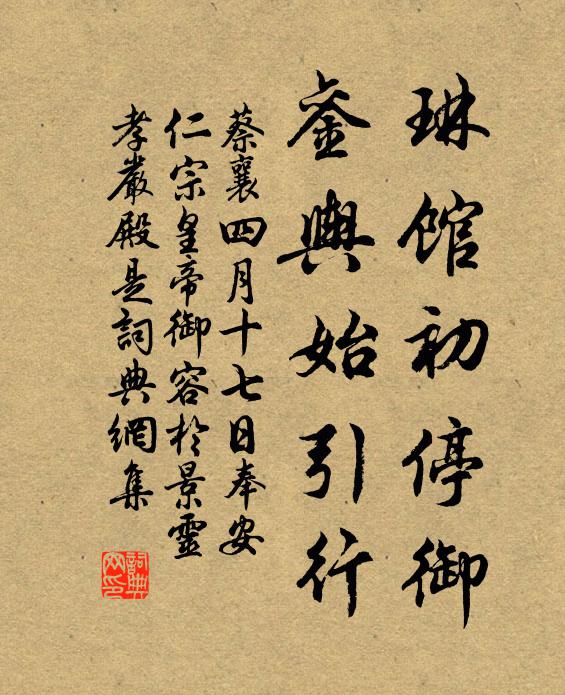 琳館初停御
鑾輿始引行
蔡襄四月十七日奉安
仁宗皇帝御容於景靈
孝嚴殿是詞典網集
詞典網印